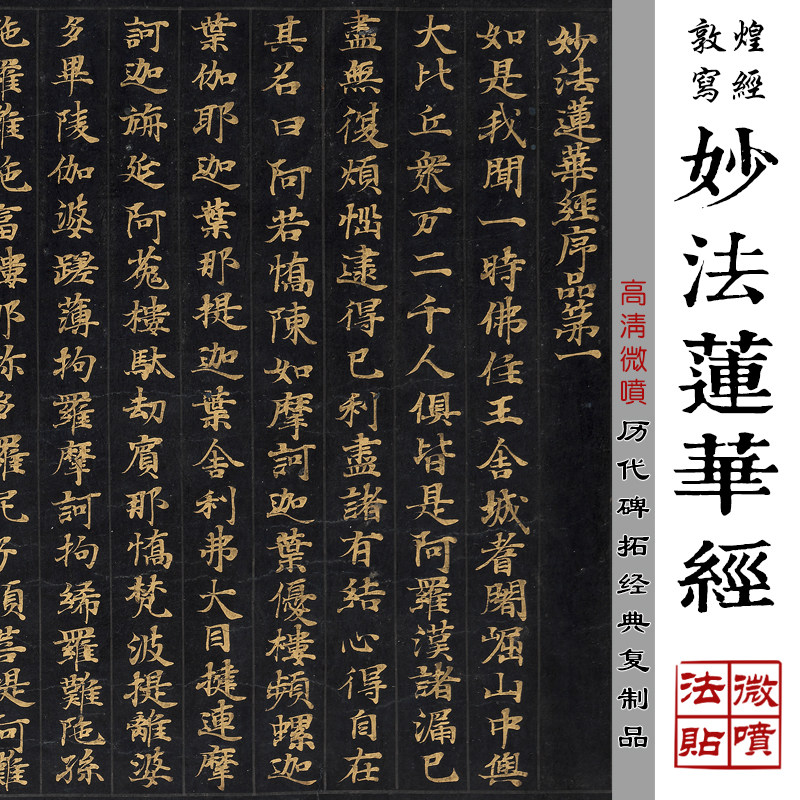 敦煌
寫經
妙法蓮華經
微噴
法貼
高清微噴 历代碑拓经典复制品
妙法蓮華經序品第一
如是我聞一時佛住王舍城耆闍崛山中與
大比丘衆万二千人俱皆是阿羅漢諸漏已
盡無復煩惱逮得已利盡諸有結心得自在
其名曰阿若憍陳如摩訶迦葉優樓頻螺迦
葉伽耶迦葉那提迦葉舍利弗大目揵連摩
訶迦旃延阿㝹樓馱劫賓那憍梵波提離婆
多畢陵伽婆蹉薄拘羅摩訶拘絺羅難陁孫
陁羅難陁富樓那弥多羅尼子須菩提阿難